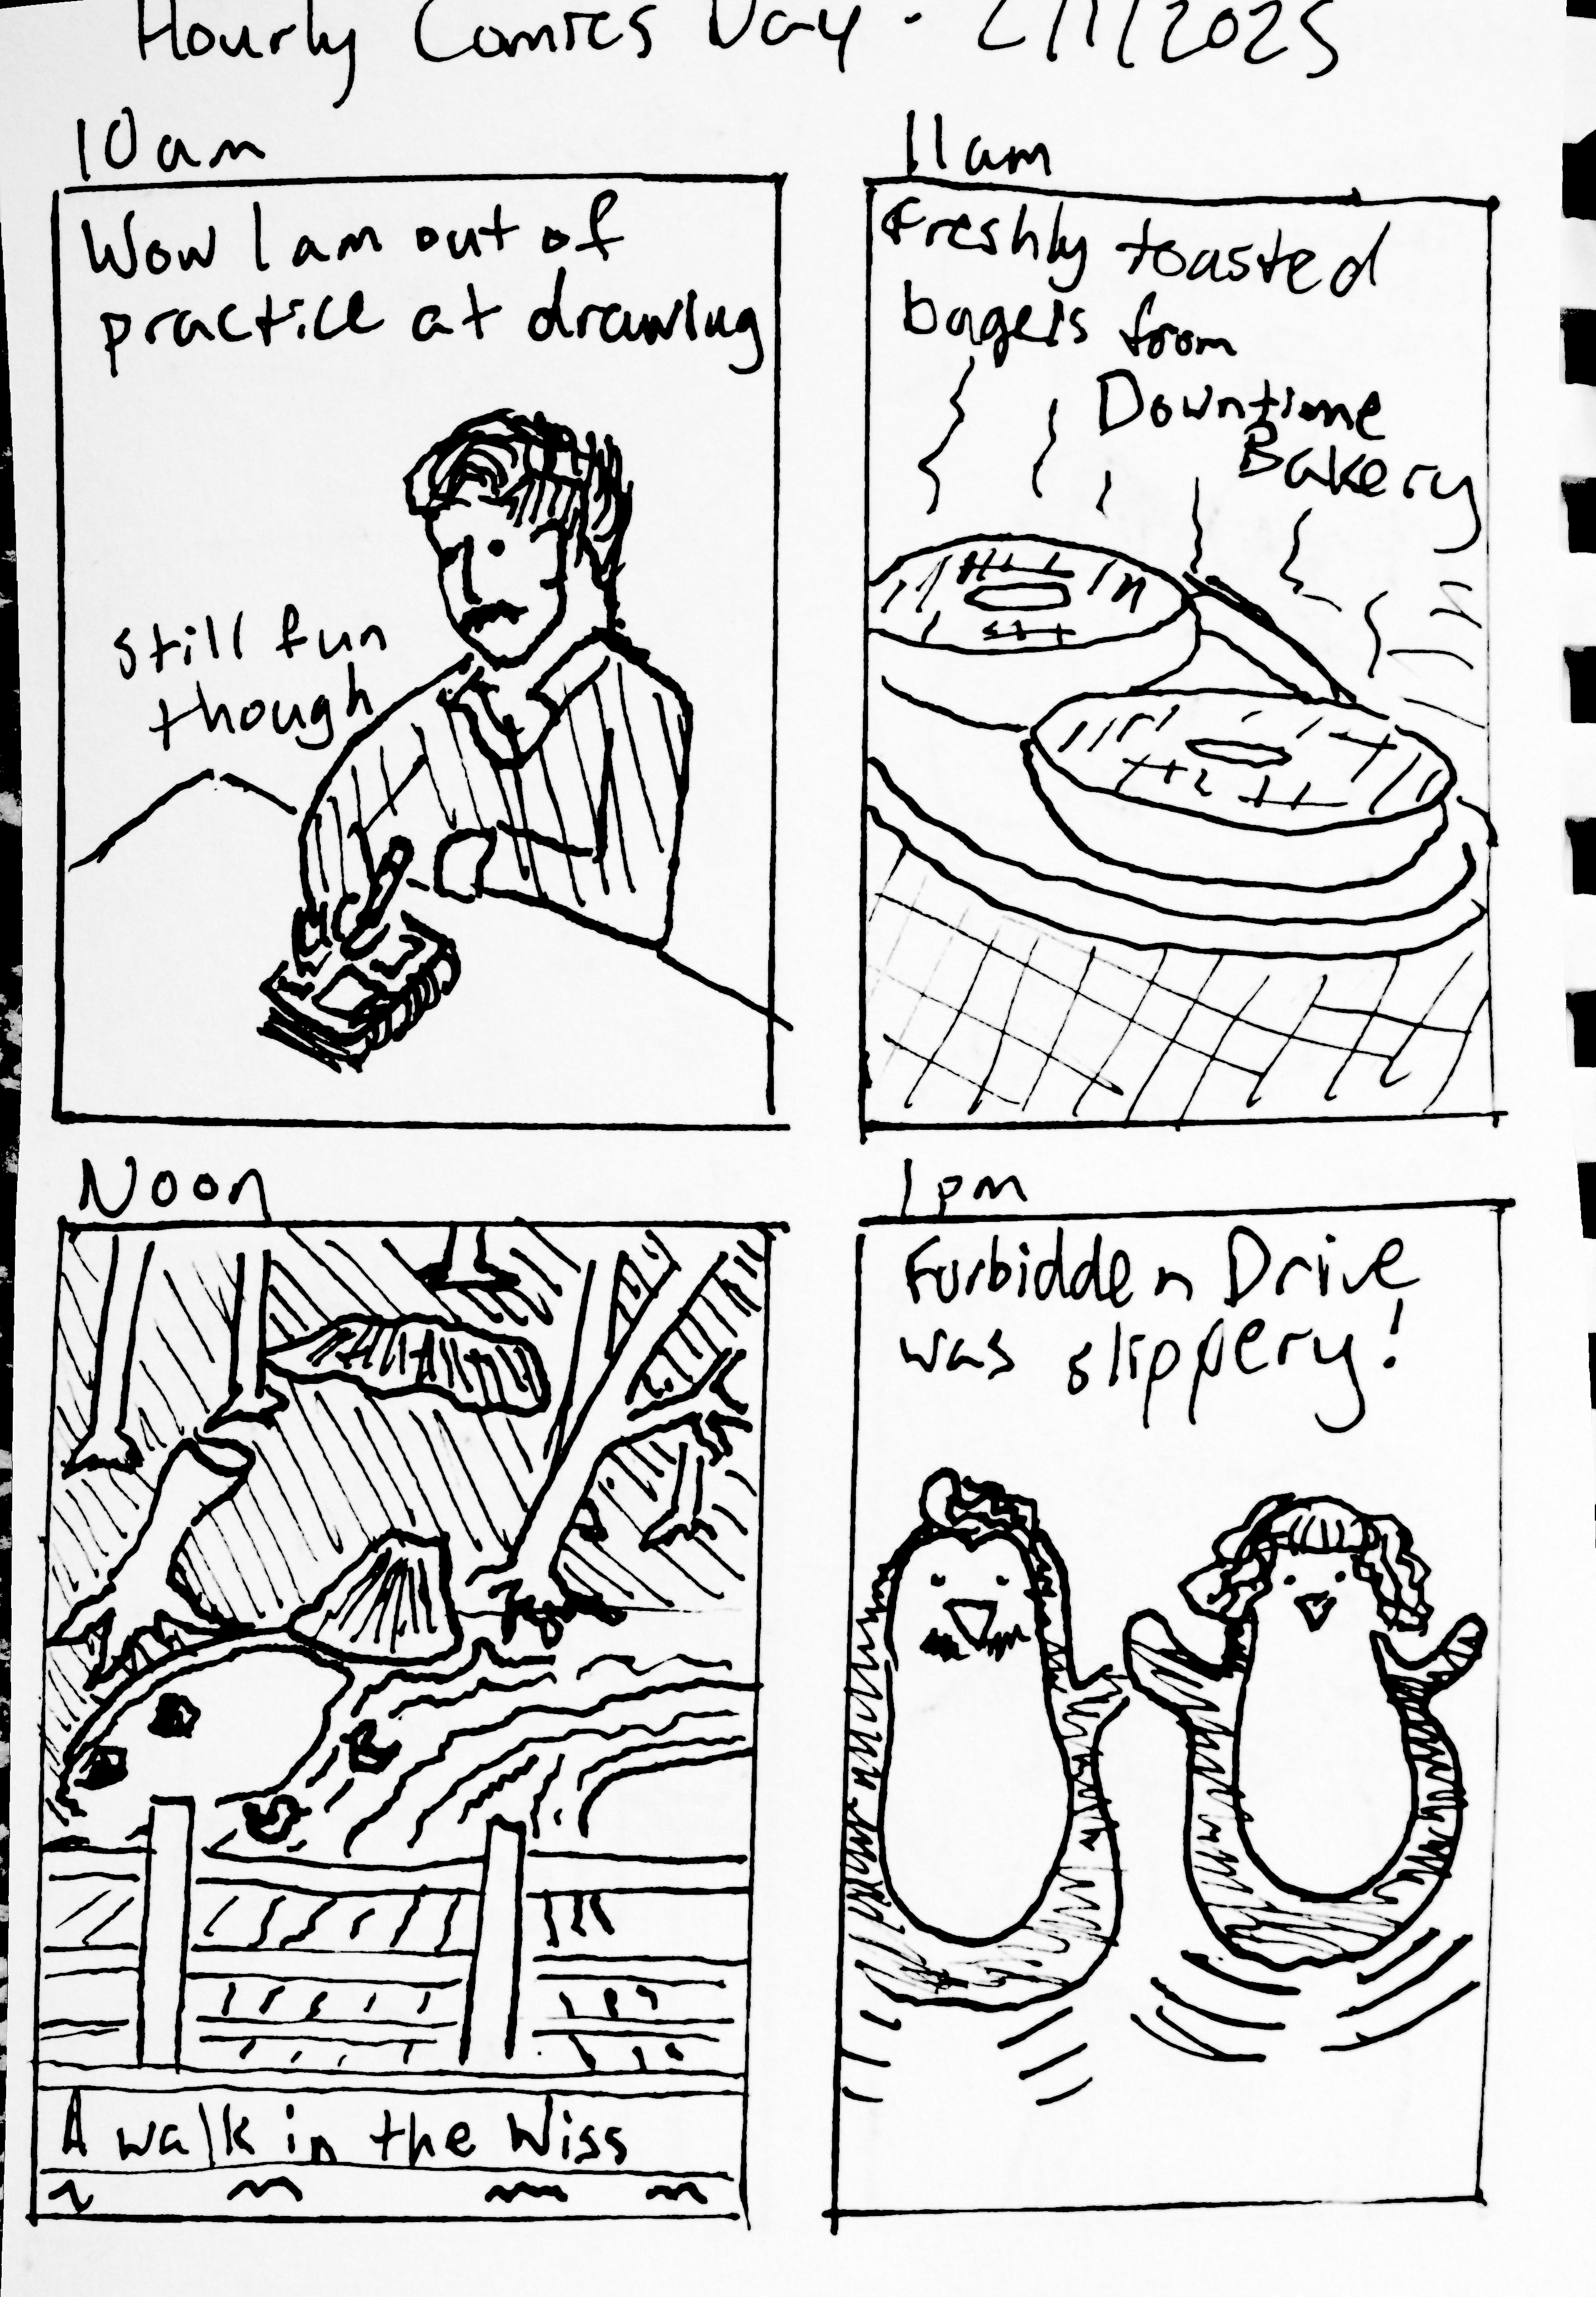 Hourly Comics Day - 2/1/2025
10am
Wow I am out of
practice at drawing
still fun
though
11am
Freshly toasted
bagels from
Downtime
Bakery
Noon
A walk in the Wiss
1pm
Forbidden Drive
was slippery!